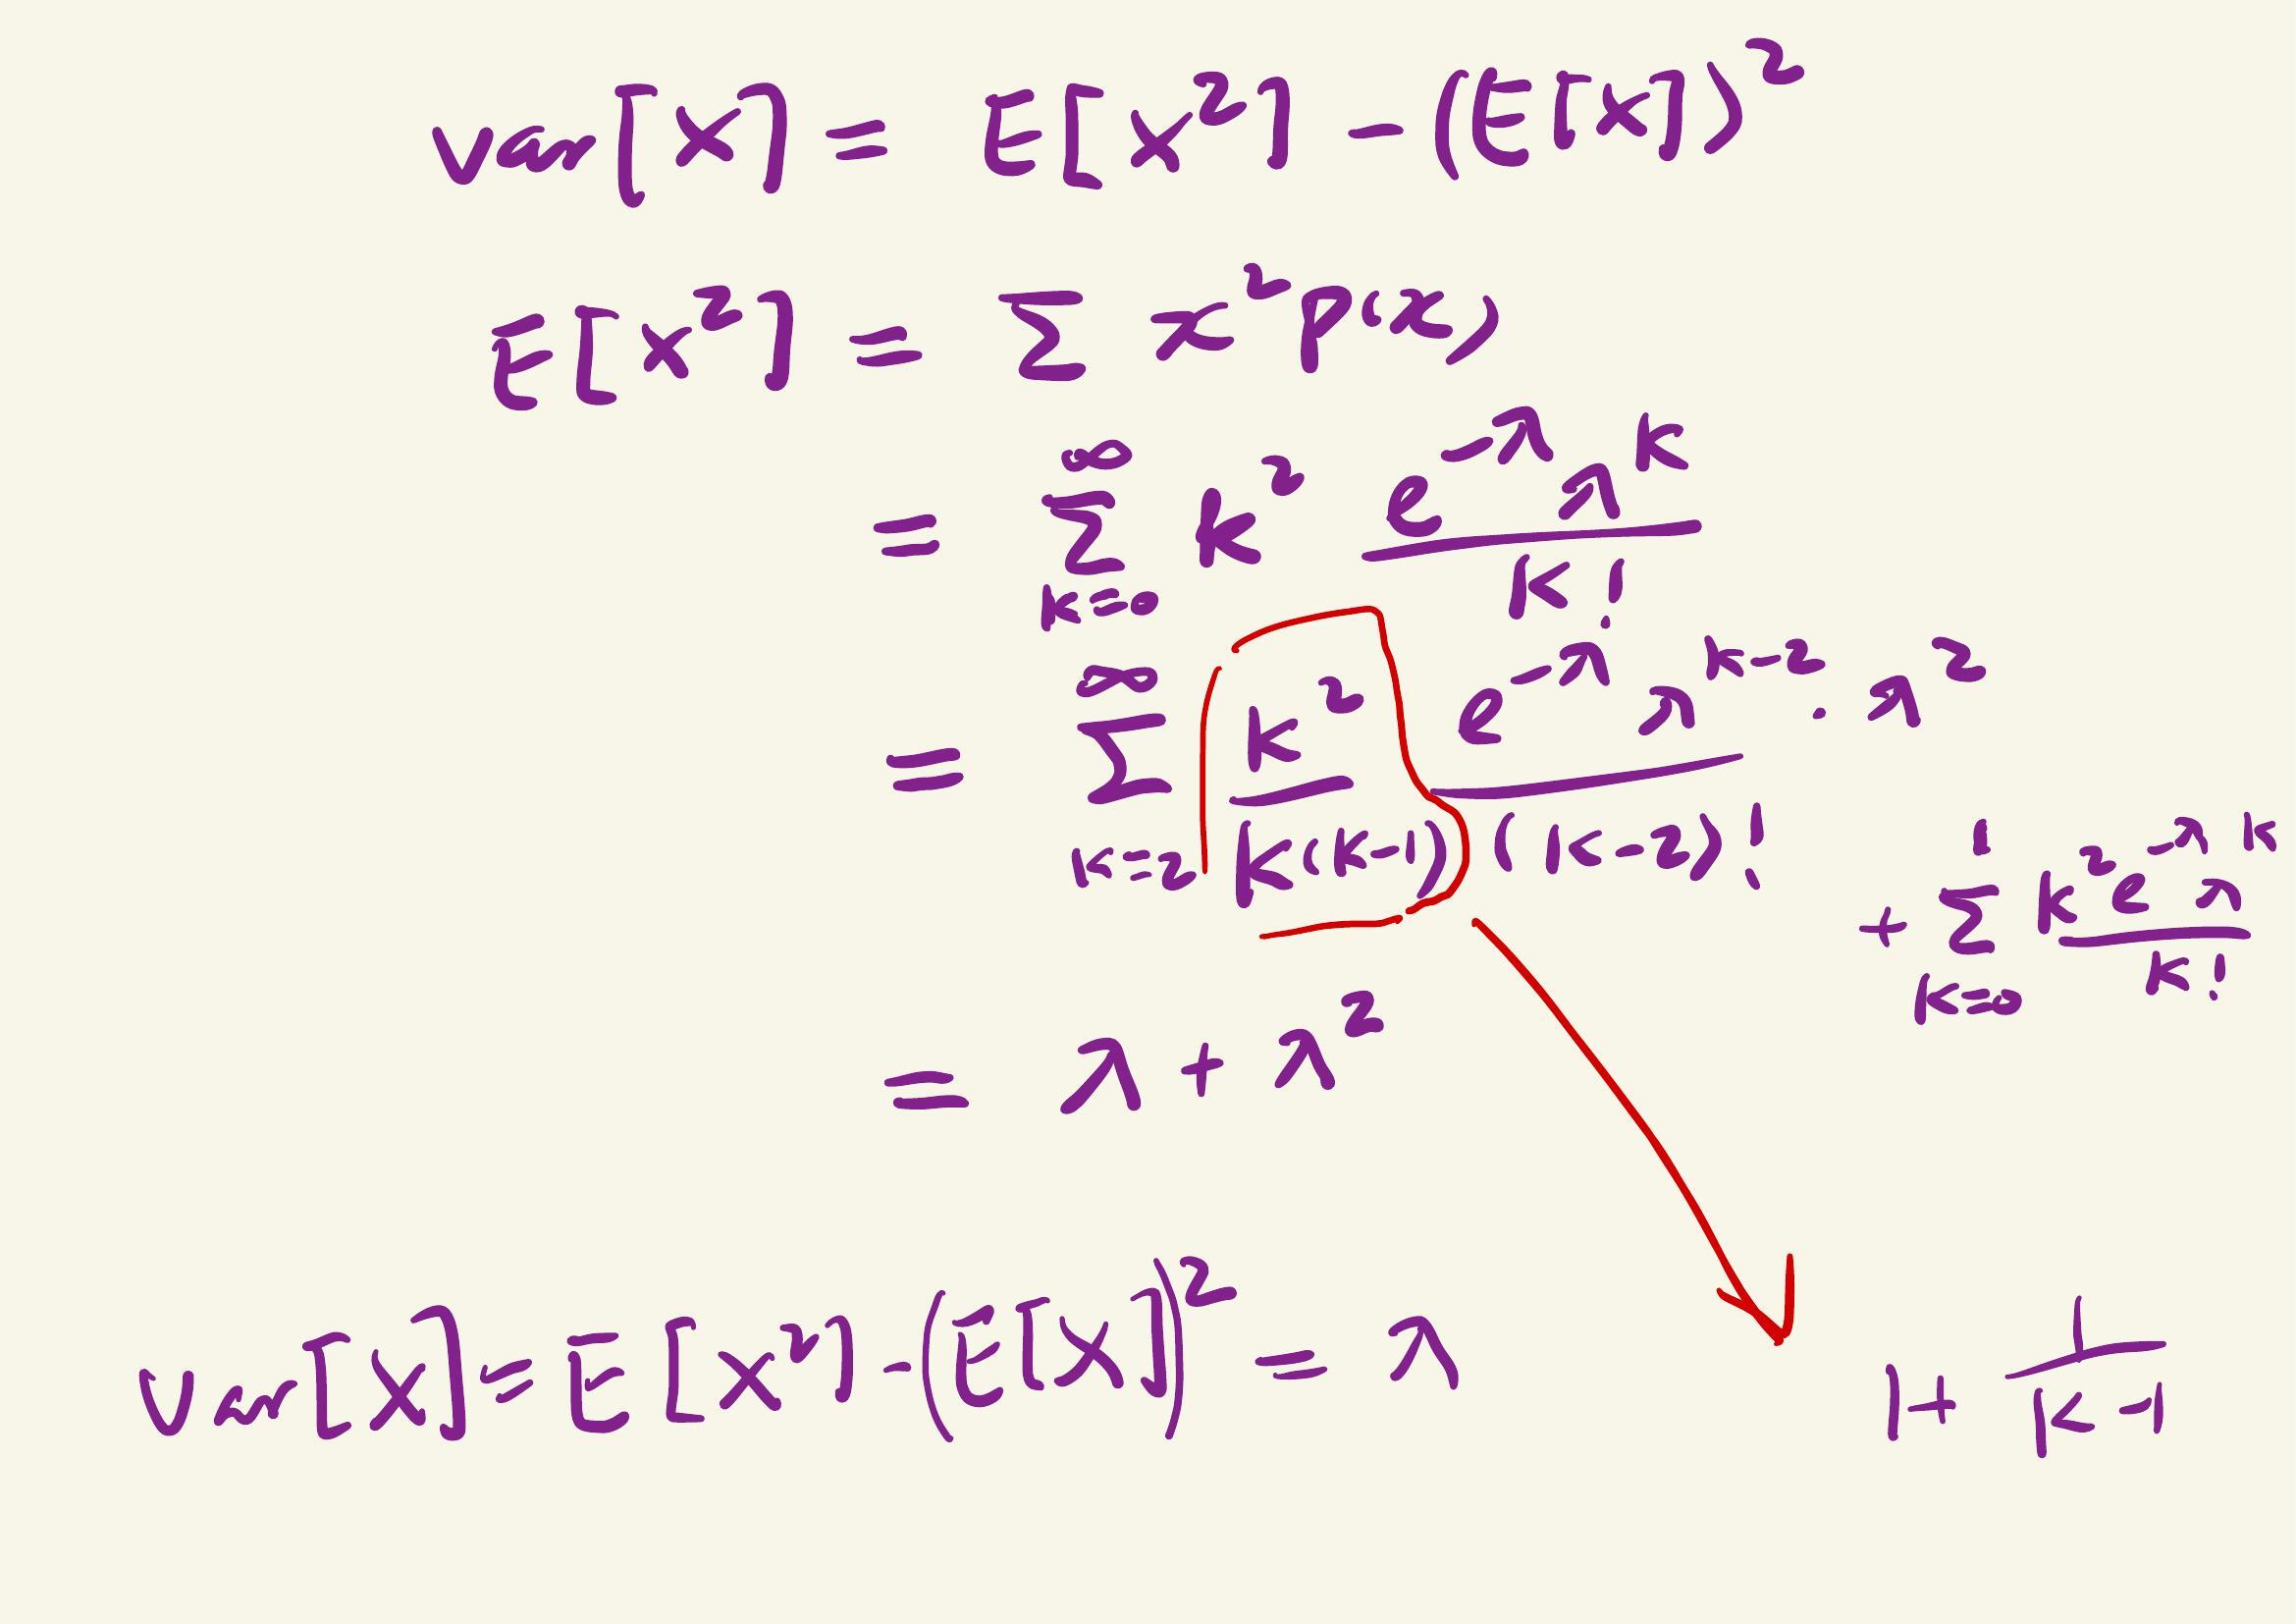 var[X] = E[X²] - (E[X])²
E[X²] = Σ x² p(x)
= Σ_{k=0}^{∞} k² \frac{e^{-λ} λ^k}{k!}
= Σ_{k=2}^{∞} \frac{k²}{k(k-1)} \frac{e^{-λ} λ^{k-2} · λ²}{(k-2)!} + Σ_{k=0}^{1} \frac{k² e^{-λ} λ^k}{k!}
= λ + λ²
Var[X] = E[X²] - (E[X])² = λ
1 + \frac{1}{k-1}